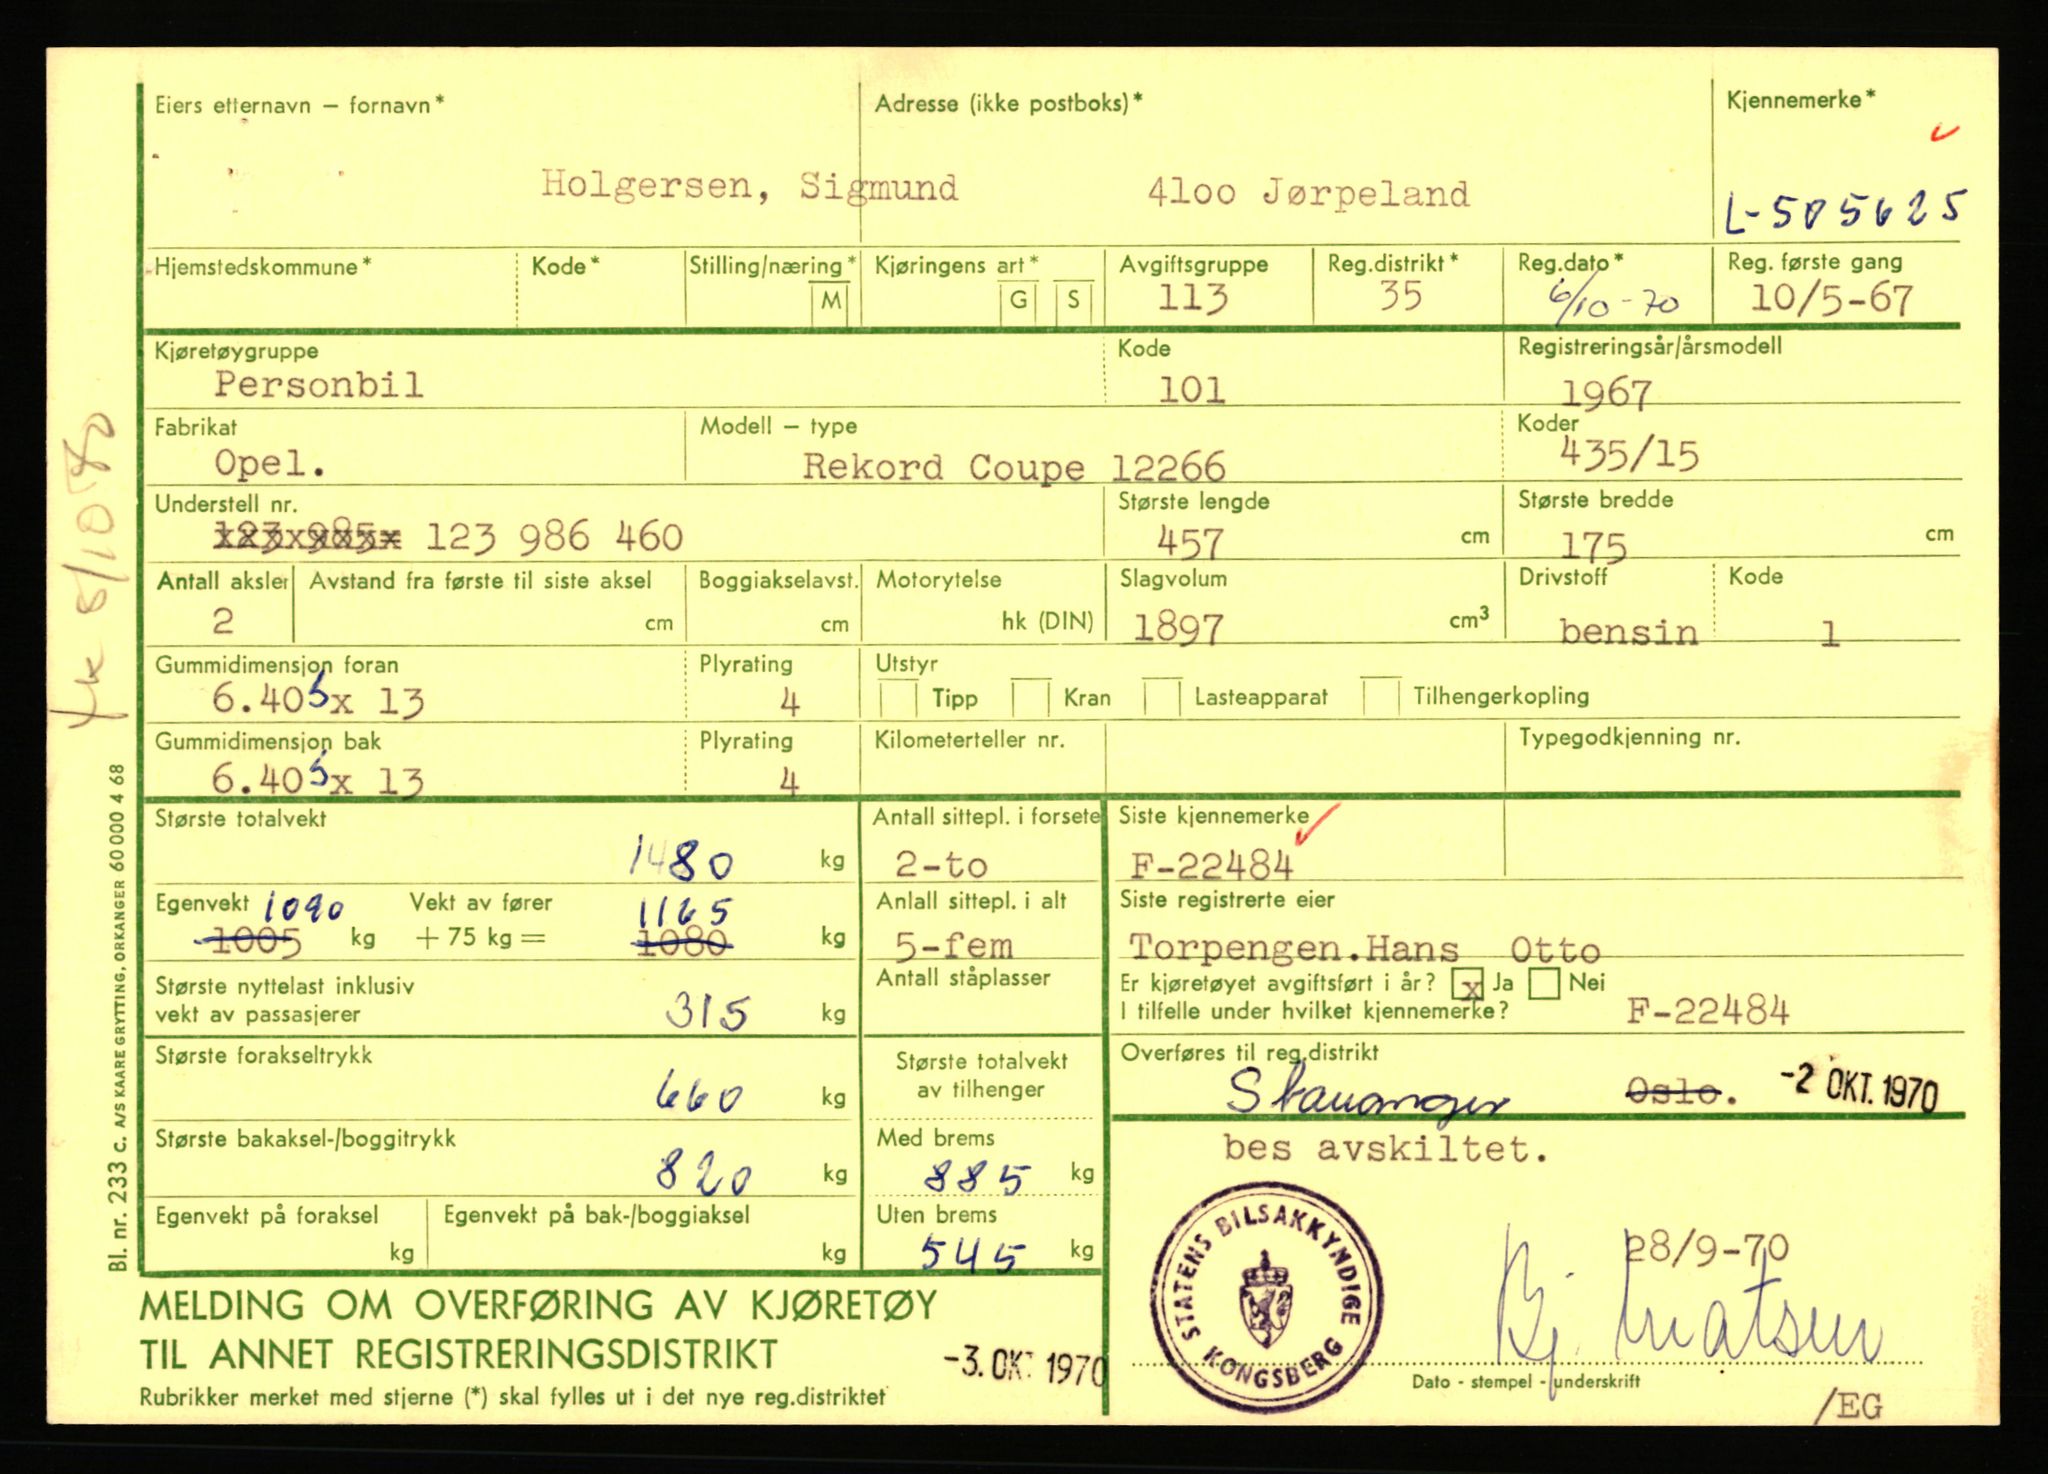 Eiers etternavn – fornavn* Adresse (ikke postboks)* Kjennemerke*
Holgersen, Sigmund 4100 Jørpeland L-505625
Hjemstedskommune* Kode* Stilling/næring* Kjøringens art* Avgiftsgruppe Reg.distrikt* Reg.dato* Reg. første gang
M G S 113 35 6/10-70 10/5-67
Kjøretøygruppe Kode Registreringsår/årsmodell
Personbil 101 1967
Fabrikat Modell – type Koder
Opel. Rekord Coupe 12266 435/15
Understell nr. Største lengde Største bredde
123 985 123 986 460 457 cm 175 cm
Antall aksler Avstand fra første til siste aksel Boggiakselavst. Motorytelse Slagvolum Drivstoff Kode
2 cm cm hk (DIN) 1897 cm3 bensin 1
Gummidimensjon foran Plyrating Utstyr
6.40 S x 13 4 Tipp Kran Lasteapparat Tilhengerkopling
Gummidimensjon bak Plyrating Kilometerteller nr. Typegodkjenning nr.
6.40 S x 13 4
Største totalvekt Antall sittepl. i forsete Siste kjennemerke
1480 kg 2-to F-22484
Egenvekt 1090 Vekt av fører 1165 Anlall sittepl. i alt Siste registrerte eier
1005 kg + 75 kg = 1080 kg 5-fem Torpengen.Hans Otto
Største nyttelast inklusiv Antall ståplasser Er kjøretøyet avgiftsført i år? x Ja Nei
vekt av passasjerer 315 kg I tilfelle under hvilket kjennemerke? F-22484
Største forakseltrykk Største totalvekt Overføres til reg.distrikt
660 kg av tilhenger Stavanger Oslo. -2 OKT. 1970
Største bakaksel-/boggitrykk Med brems bes avskiltet.
820 kg 885 kg
Egenvekt på foraksel Egenvekt på bak-/boggiaksel Uten brems
kg kg 545 kg 28/9-70
STATENS BILSAKKYNDIGE KONGSBERG
MELDING OM OVERFØRING AV KJØRETØY
TIL ANNET REGISTRERINGSDISTRIKT -3. OKT 1970
Bj. Matsen
Dato - stempel - underskrift
Rubrikker merket med stjerne (*) skal fylles ut i det nye reg.distriktet
/EG
Bl. nr. 233 C. A/S KAARE GRYTTING, ORKANGER 60000 4 68